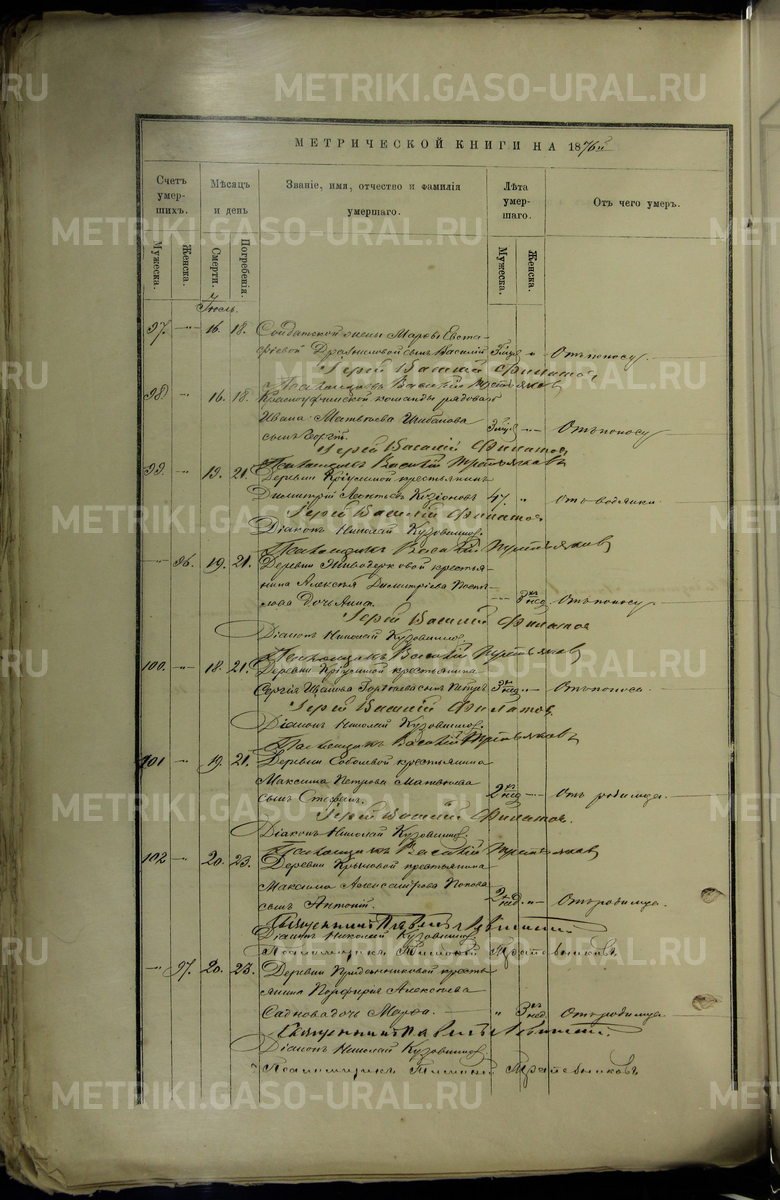 МЕТРИЧЕСКОЙ КНИГИ НА 1876й
Счетъ умершихъ.
Мѣсяцъ и день
Званіе, имя, отчество и фамилія умершаго.
Лѣта умершаго.
Отъ чего умеръ.
Мужеска.
Женска.
Смерти.
Погребенія.
Мужеска.
Женска.
Іюль.
97. " 16. 18. Солдатской жены Марѳы Евста-
фіевой сынъ Василій " Отъ поносу
Іерей Василій Филатовъ
Псаломщикъ Василій Третьяковъ
98. " 16. 18. Красноуфимской команды рядоваго
Ивана Матвѣева Шибанова
сынъ Георгій. " Отъ поносу
Іерей Василій Филатовъ
Псаломщикъ Василій Третьяковъ
99. " 19. 21. Деревни крестьянинъ
Димитрій 47 " Отъ водянки
Іерей Василій Филатовъ
Діаконъ Николай Кузовниковъ.
Псаломщикъ Василій Третьяковъ
" 96. 19. 21. Деревни крестья-
нина Алексѣя Димитріева Поспѣ-
лова дочь Анна. " Отъ поносу
Іерей Василій Филатовъ
Діаконъ Николай Кузовниковъ
Псаломщикъ Василій Третьяковъ
100. " 18. 21. Деревни крестьянина
Сергія сынъ Петръ " Отъ поноса
Іерей Василій Филатовъ
Діаконъ Николай Кузовниковъ.
Псаломщикъ Василій Третьяковъ
101 " 19. 21. Деревни Соболевой крестьянина
Максима Петрова Матвѣева
сынъ Стефанъ. 2 нед. " Отъ родимца.
Іерей Василій Филатовъ.
Діаконъ Николай Кузовниковъ.
Псаломщикъ Василій Третьяковъ
102 " 20. 23. Деревни Крыловой крестьянина
Максима Александрова Попова
сынъ Антоній. 2 нед. " Отъ родимца.
Священникъ Павелъ
Діаконъ Николай Кузовниковъ
Псаломщикъ
" 97. 20. 23. Деревни кресть-
янина Порфирія Алексѣева
Садкова дочь Марѳа. " 3 нед. Отъ родимца.
Священникъ Павелъ
Діаконъ Николай Кузовниковъ
Псаломщикъ
METRIKI.GASO-URAL.RU